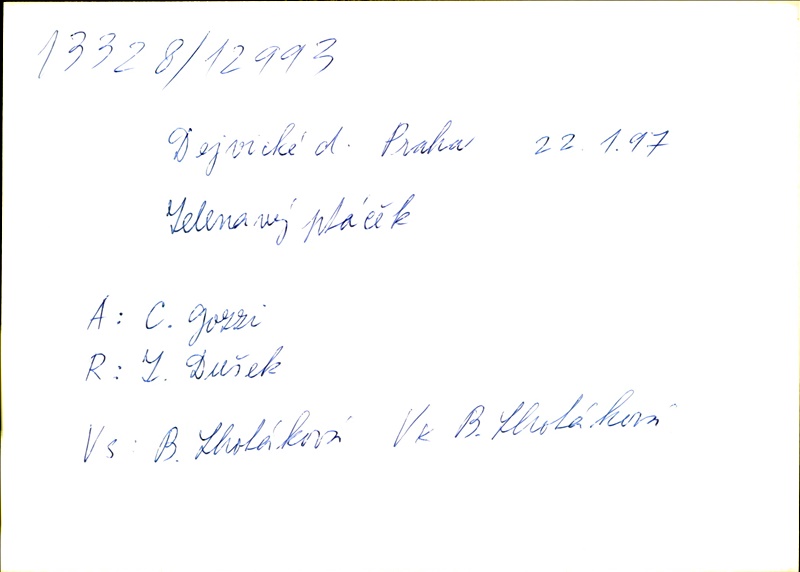 13328/12993
Dejvické d. Praha 22.1.97
Zelenavý ptáčěk
A: C. Gozzi
R: Z. Dušek
Vs: B. Lhotáková Vk B. Lhotáková